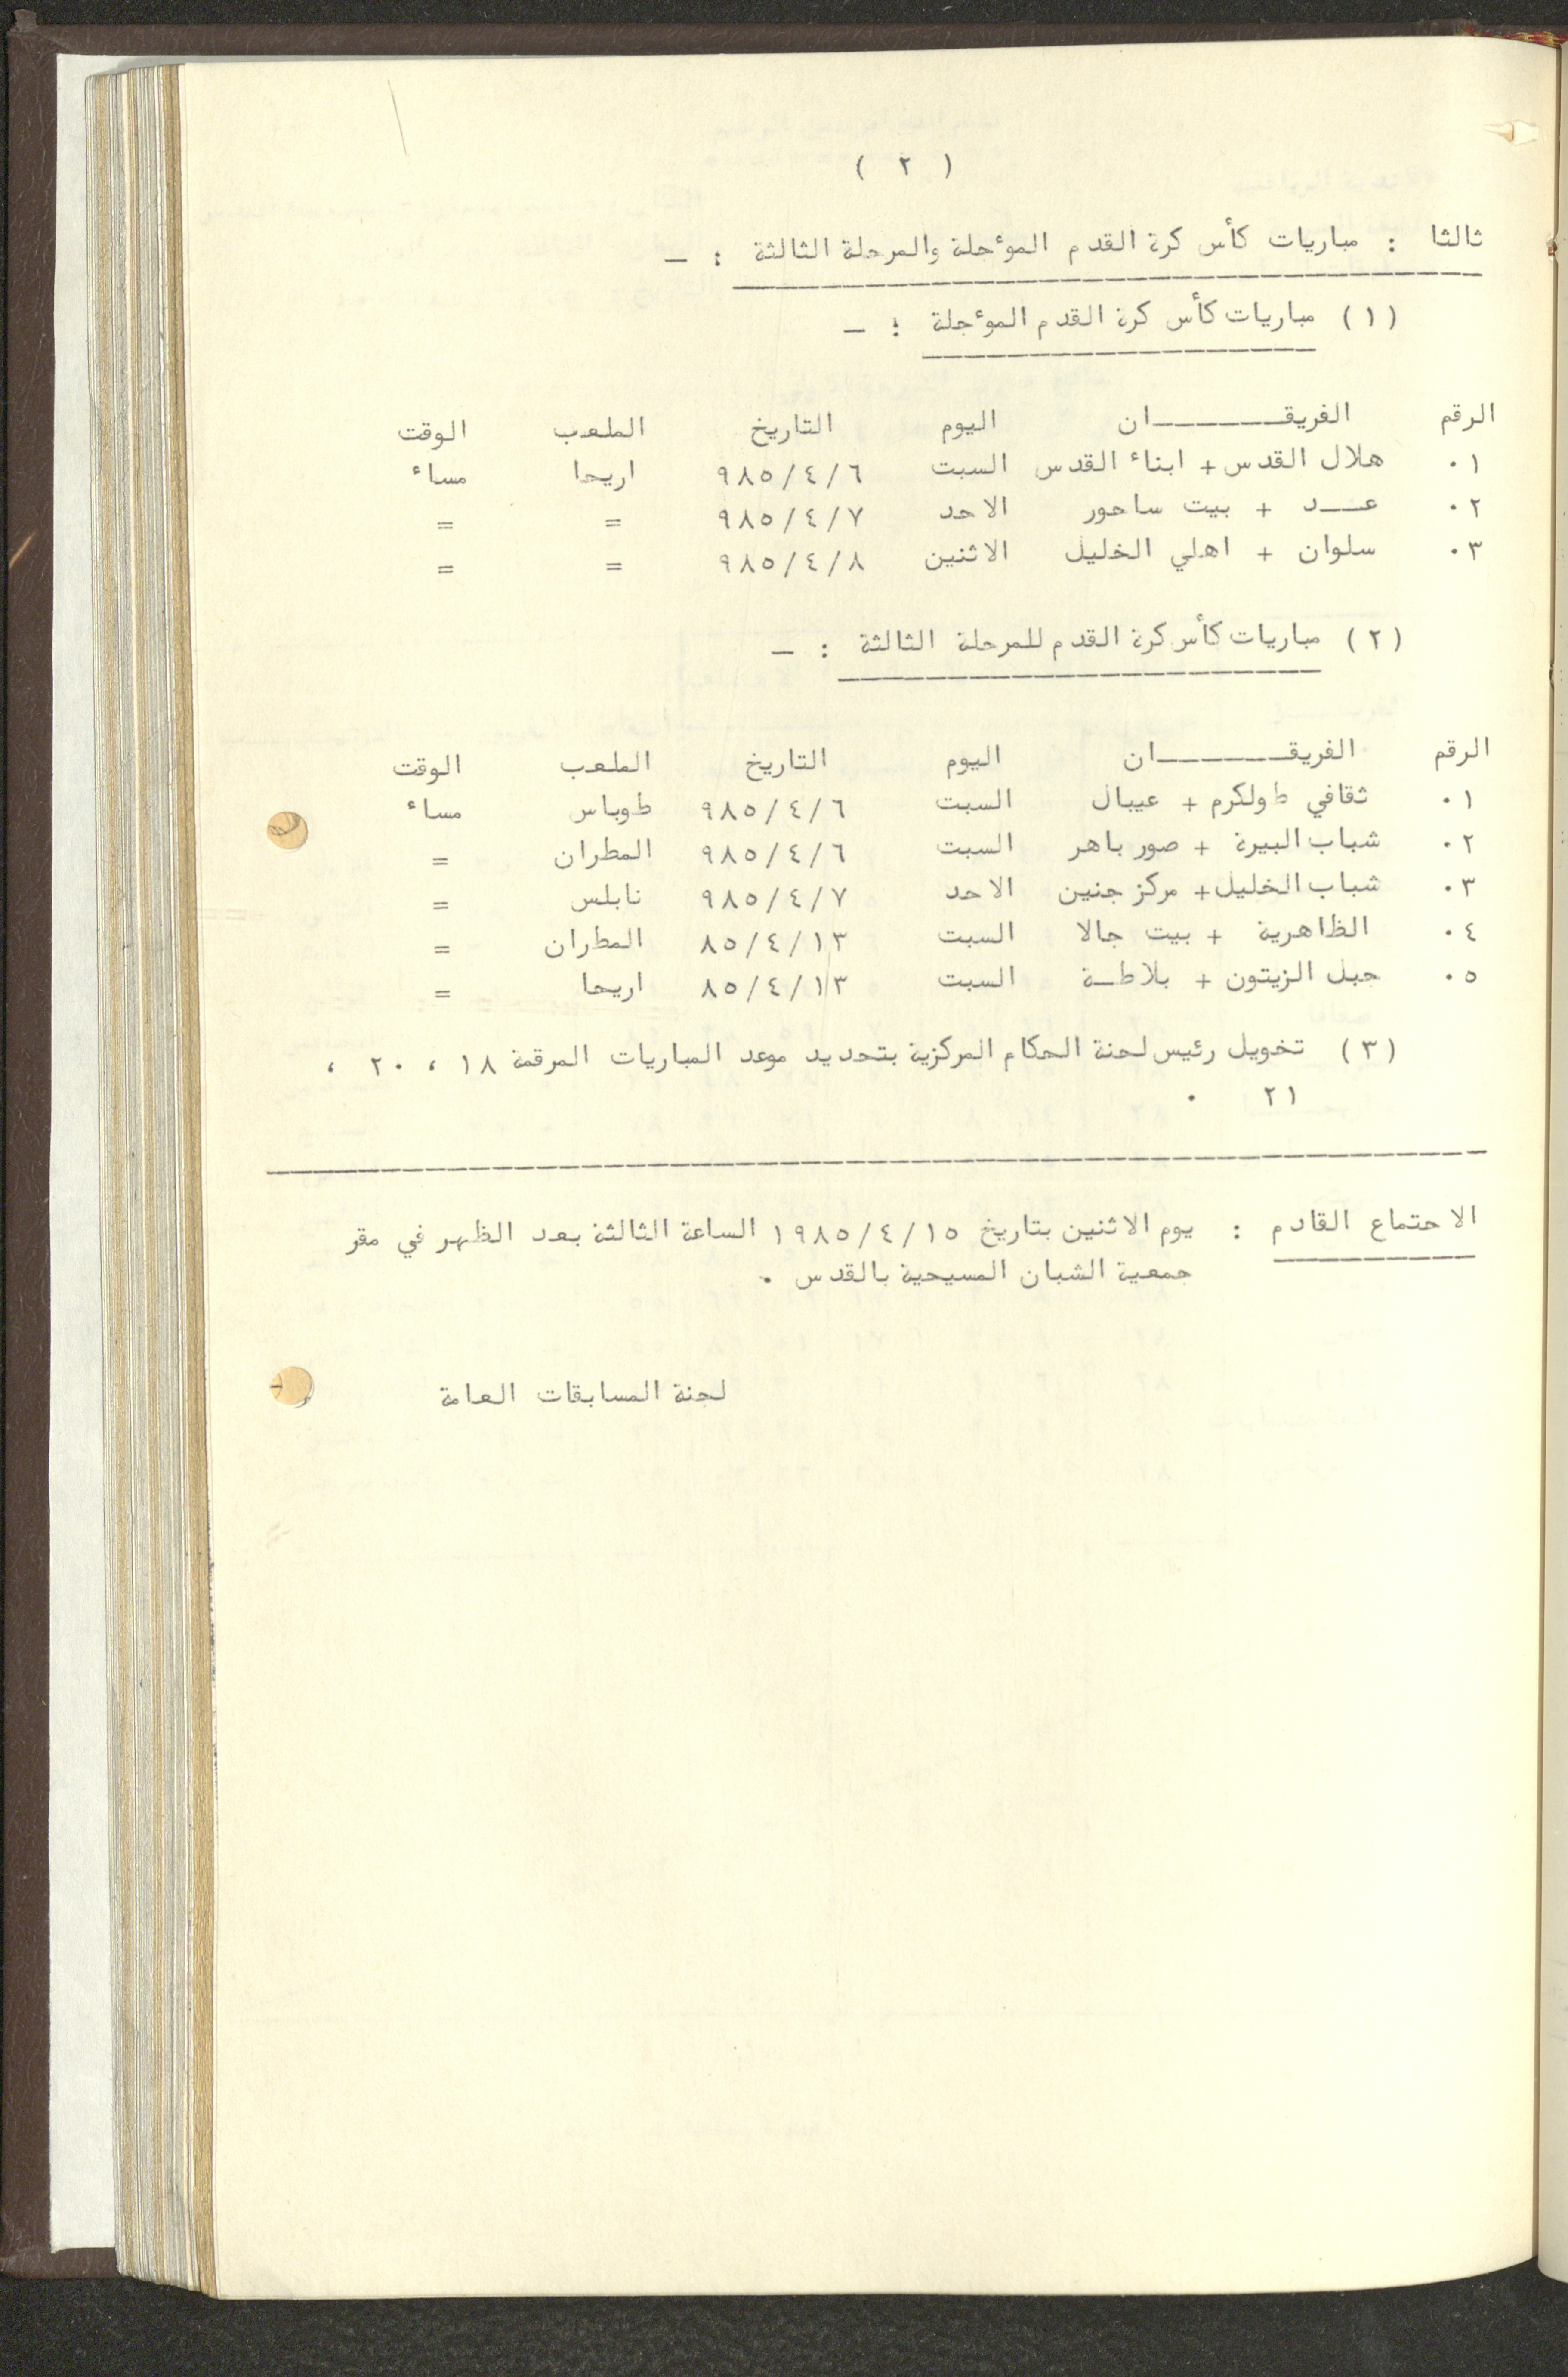 ( ٢ )
ثالثا : مباريات كأس كرة القدم المؤجلة والمرحلة الثالثة : ـ
(١) مباريات كأس كرة القدم المؤجلة : ـ
الرقم الفريقـــــــان اليوم التاريخ الملعب الوقت
٠١ هلال القدس + ابناء القدس السبت ٩٨٥/٤/٦ اريحا مساء
٠٢ عـــد + بيت ساحور الاحد ٩٨٥/٤/٧ = =
٠٣ سلوان + اهلي الخليل الاثنين ٩٨٥/٤/٨ = =
(٢) مباريات كأس كرة القدم للمرحلة الثالثة : ـ
الرقم الفريقـــــــان اليوم التاريخ الملعب الوقت
٠١ ثقافي طولكرم + عيبال السبت ٩٨٥/٤/٦ طوباس مساء
٠٢ شباب البيرة + صور باهر السبت ٩٨٥/٤/٦ المطران =
٠٣ شباب الخليل + مركز جنين الاحد ٩٨٥/٤/٧ نابلس =
٠٤ الظاهرية + بيت جالا السبت ٨٥/٤/١٣ المطران =
٠٥ جبل الزيتون + بلاطـة السبت ٨٥/٤/١٣ اريحا =
(٣) تخويل رئيس لجنة الحكام المركزية بتحديد موعد المباريات المرقمة ١٨ ، ٢٠ ،
٢١ .
الاجتماع القادم : يوم الاثنين بتاريخ ١٩٨٥/٤/١٥ الساعة الثالثة بعد الظهر في مقر
جمعية الشبان المسيحية بالقدس .
لجنة المسابقات العامة